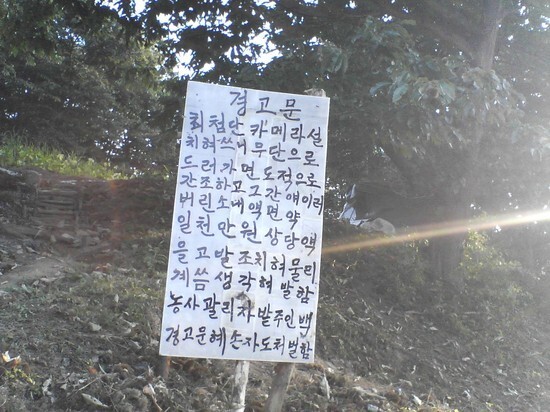 경고문
최첨단 카메라설
치혀쓰니무단으로
드러가면도적으로
간조하고그간얘이러
버린소내액면약
일천만원상당액
을고발조치혀물리
계씀생각혀발함
농사팔리자발주인백
경고문헤손자도처벌함